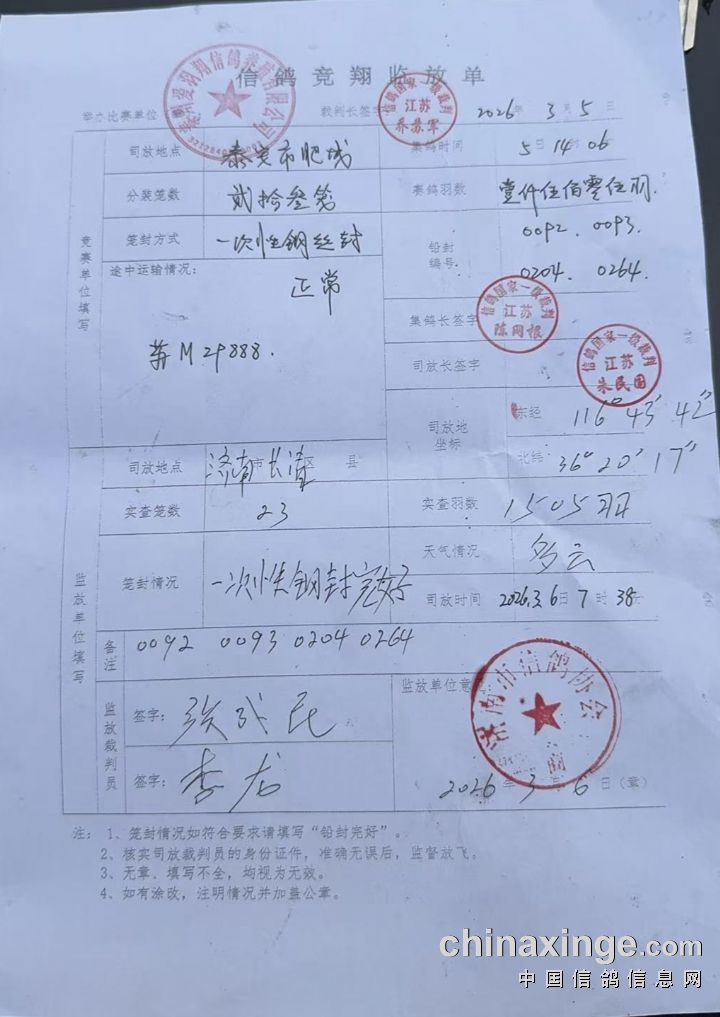 信鸽竞翔监放单
举办比赛单位
裁判长签字
信鸽国家一级裁判
江苏
乔苏军
2026年3月5日
司放地点 泰安市肥城 集鸽时间 5日14时06
分装笼数 贰拾叁笼 赛鸽羽数 壹仟伍佰零伍羽.
竞赛单位填写
笼封方式 一次性钢丝封 铅封编号 0092. 0093.
0204. 0264.
途中运输情况: 正常
苏M29888.
集鸽长签字
信鸽国家一级裁判
江苏
陈网根
司放长签字
信鸽国家一级裁判
江苏
朱民国
司放地坐标 东经 116° 43′ 42″
北纬 36° 20′ 17″
司放地点 济南市长清区 县
实查笼数 23 实查羽数 1505羽
天气情况 多云
监放单位填写
笼封情况 一次性钢封完好 司放时间 2026.3.6日7时38
备注 0092 0093 0204 0264
监放裁判员
签字:
签字: 李龙
监放单位意
济南市信鸽协会
2026年3月6日(章)
注: 1、笼封情况如符合要求请填写“铅封完好”。
2、核实司放裁判员的身份证件,准确无误后,监督放飞。
3、无章、填写不全,均视为无效。
4、如有涂改,注明情况并加盖公章。
chinaxinge.com
中国信鸽信息网